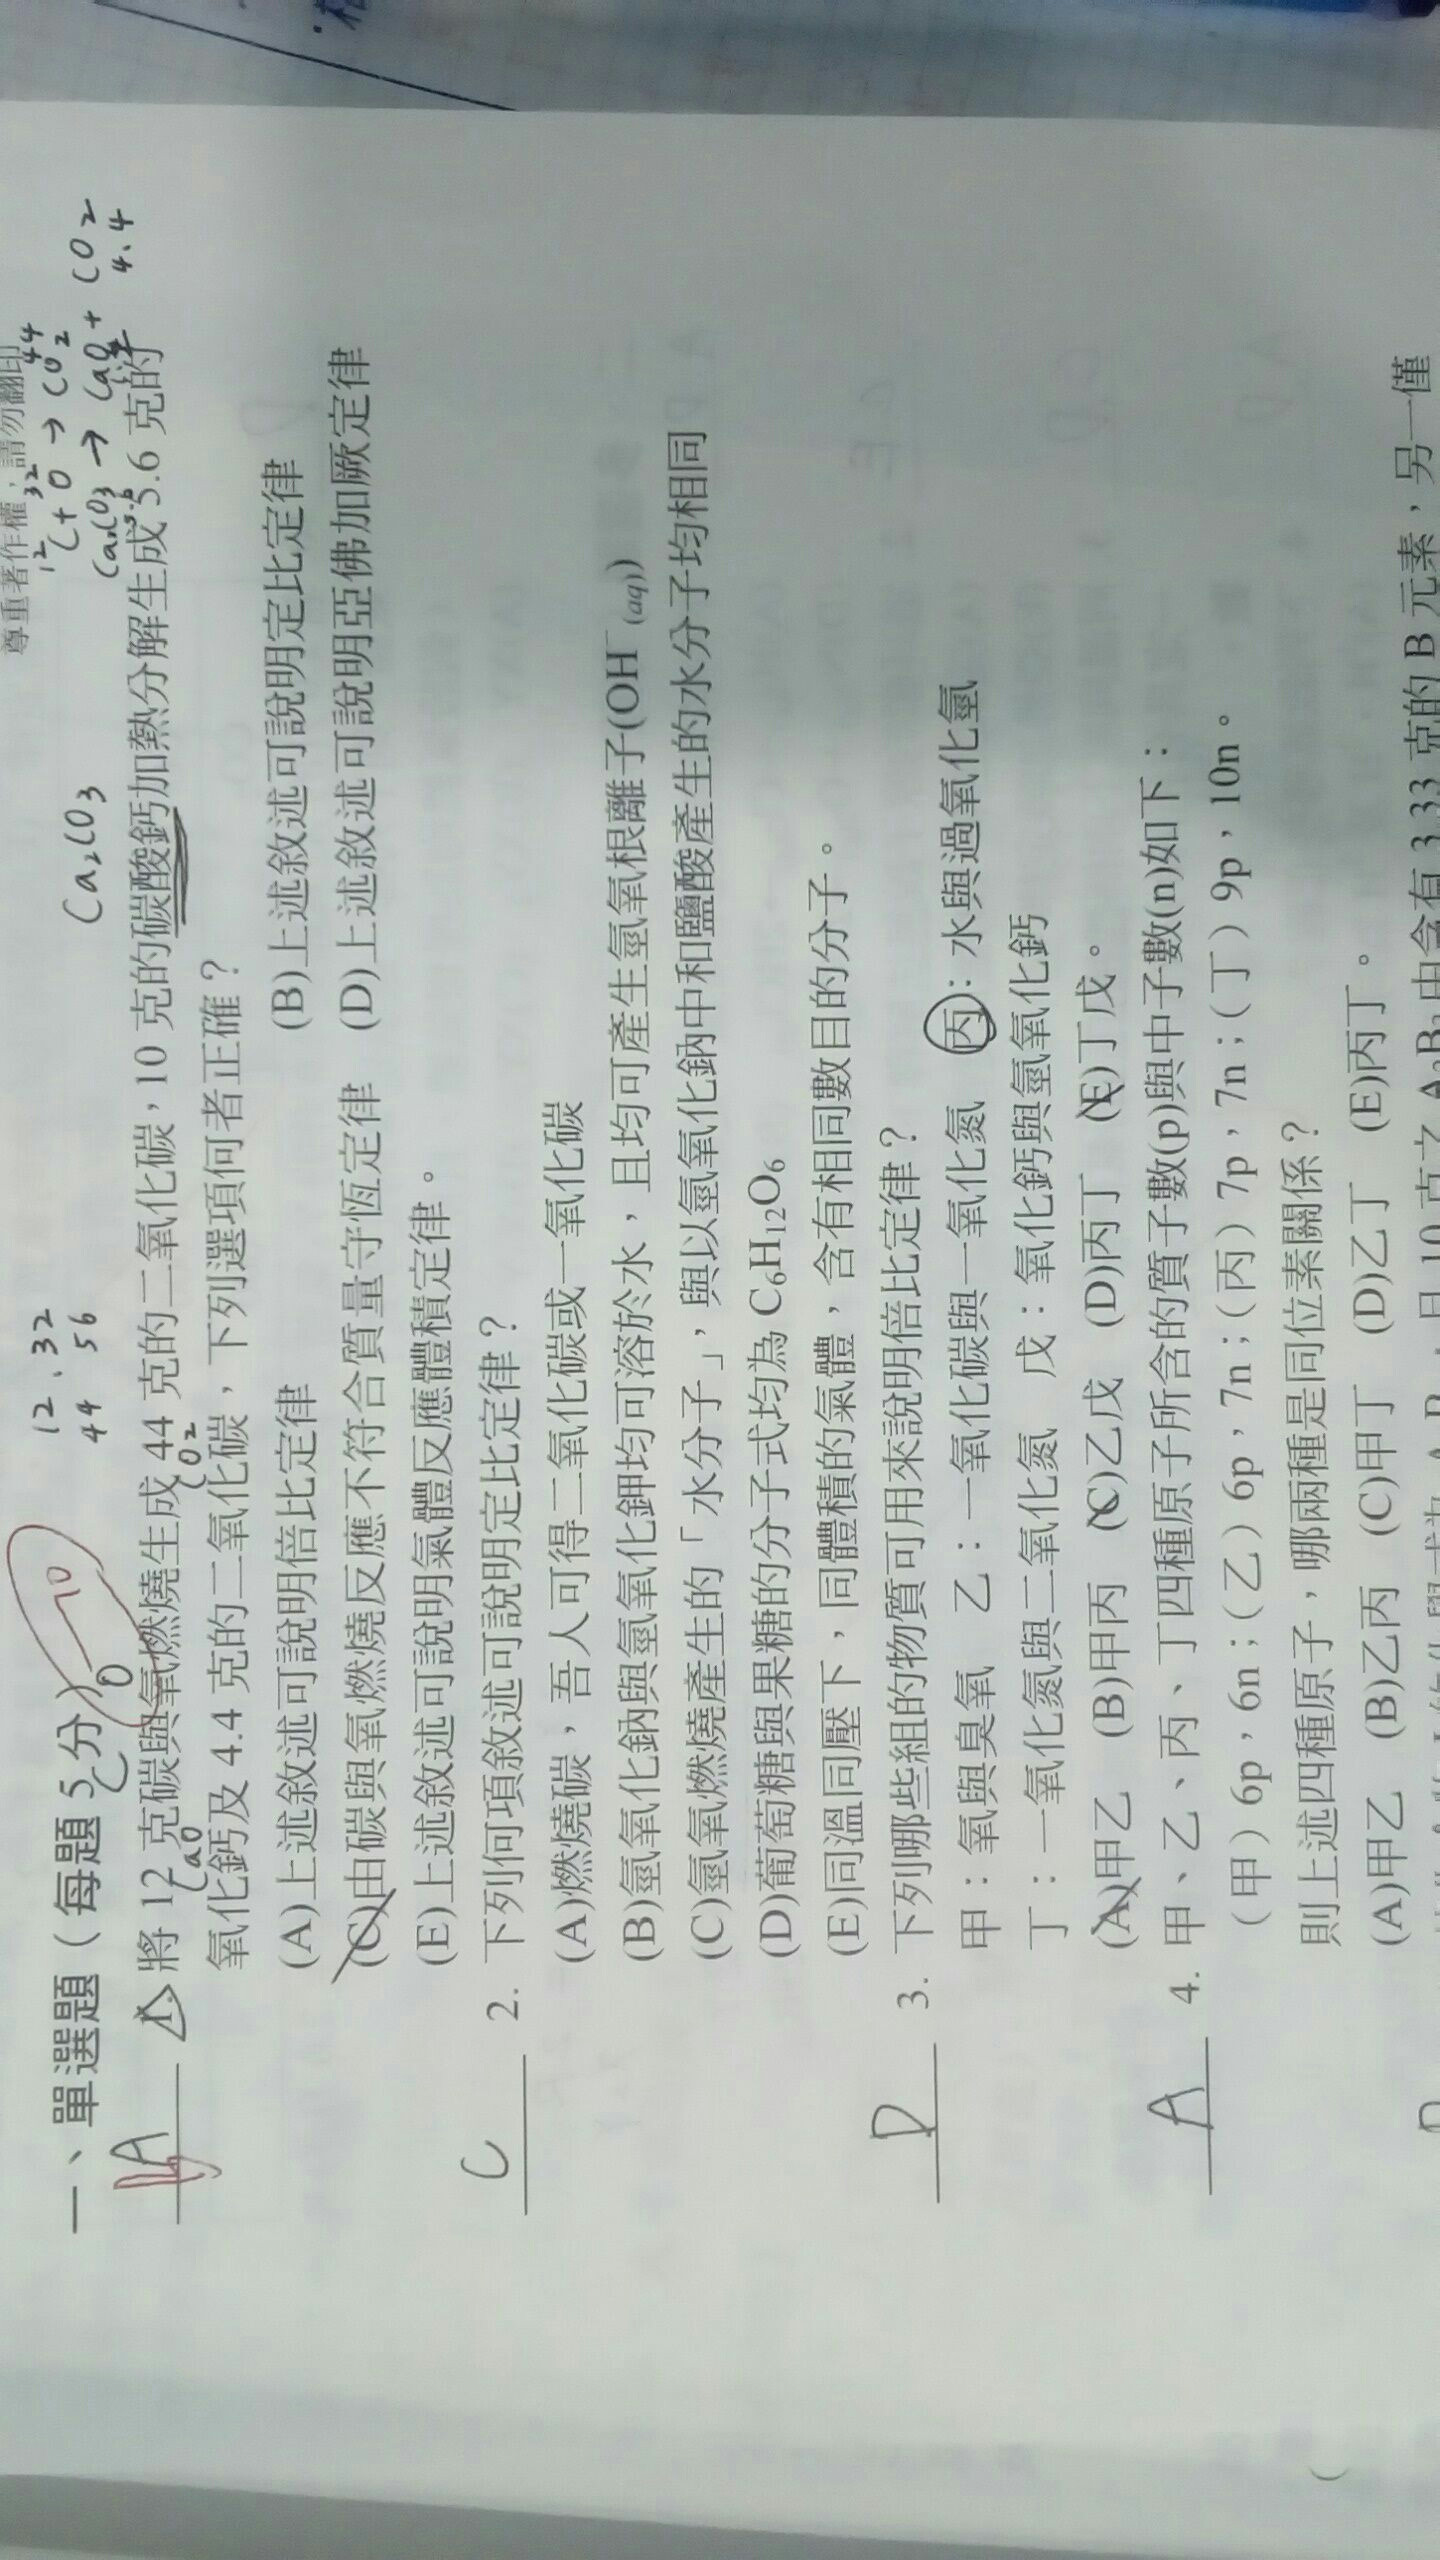 尊重著作權，請勿翻印
12 32 44
C + O → CO2
Ca2CO3
CaCO3 → CaO + CO2
5.6 4.4
12、32
44 56
10
一、單選題（每題 5 分）
A 1. 將 12 克碳與氧燃燒生成 44 克的二氧化碳，10 克的碳酸鈣加熱分解生成 5.6 克的
C O CO2
CaO
氧化鈣及 4.4 克的二氧化碳，下列選項何者正確？
(A)上述敘述可說明倍比定律 (B)上述敘述可說明定比定律
(C)由碳與氧燃燒反應不符合質量守恆定律 (D)上述敘述可說明亞佛加厥定律
(E)上述敘述可說明氣體反應體積定律。
C 2. 下列何項敘述可說明定比定律？
(A)燃燒碳，吾人可得二氧化碳或一氧化碳
(B)氫氧化鈉與氫氧化鉀均可溶於水，且均可產生氫氧根離子(OH⁻(aq))
(C)氫氧燃燒產生的「水分子」，與以氫氧化鈉中和鹽酸產生的水分子均相同
(D)葡萄糖與果糖的分子式均為 C6H12O6
(E)同溫同壓下，同體積的氣體，含有相同數目的分子。
D 3. 下列哪些組的物質可用來說明倍比定律？
甲：氧與臭氧 乙：一氧化碳與一氧化氮 丙：水與過氧化氫
丁：一氧化氮與二氧化氮 戊：氧化鈣與氫氧化鈣
(A)甲乙 (B)甲丙 (C)乙戊 (D)丙丁 (E)丁戊。
A 4. 甲、乙、丙、丁四種原子所含的質子數(p)與中子數(n)如下：
（甲）6p，6n；（乙）6p，7n；（丙）7p，7n；（丁）9p，10n。
則上述四種原子，哪兩種是同位素關係？
(A)甲乙 (B)乙丙 (C)甲丁 (D)乙丁 (E)丙丁。
10 克之 A2B3 中含有 3.33 克的 B 元素，另一僅